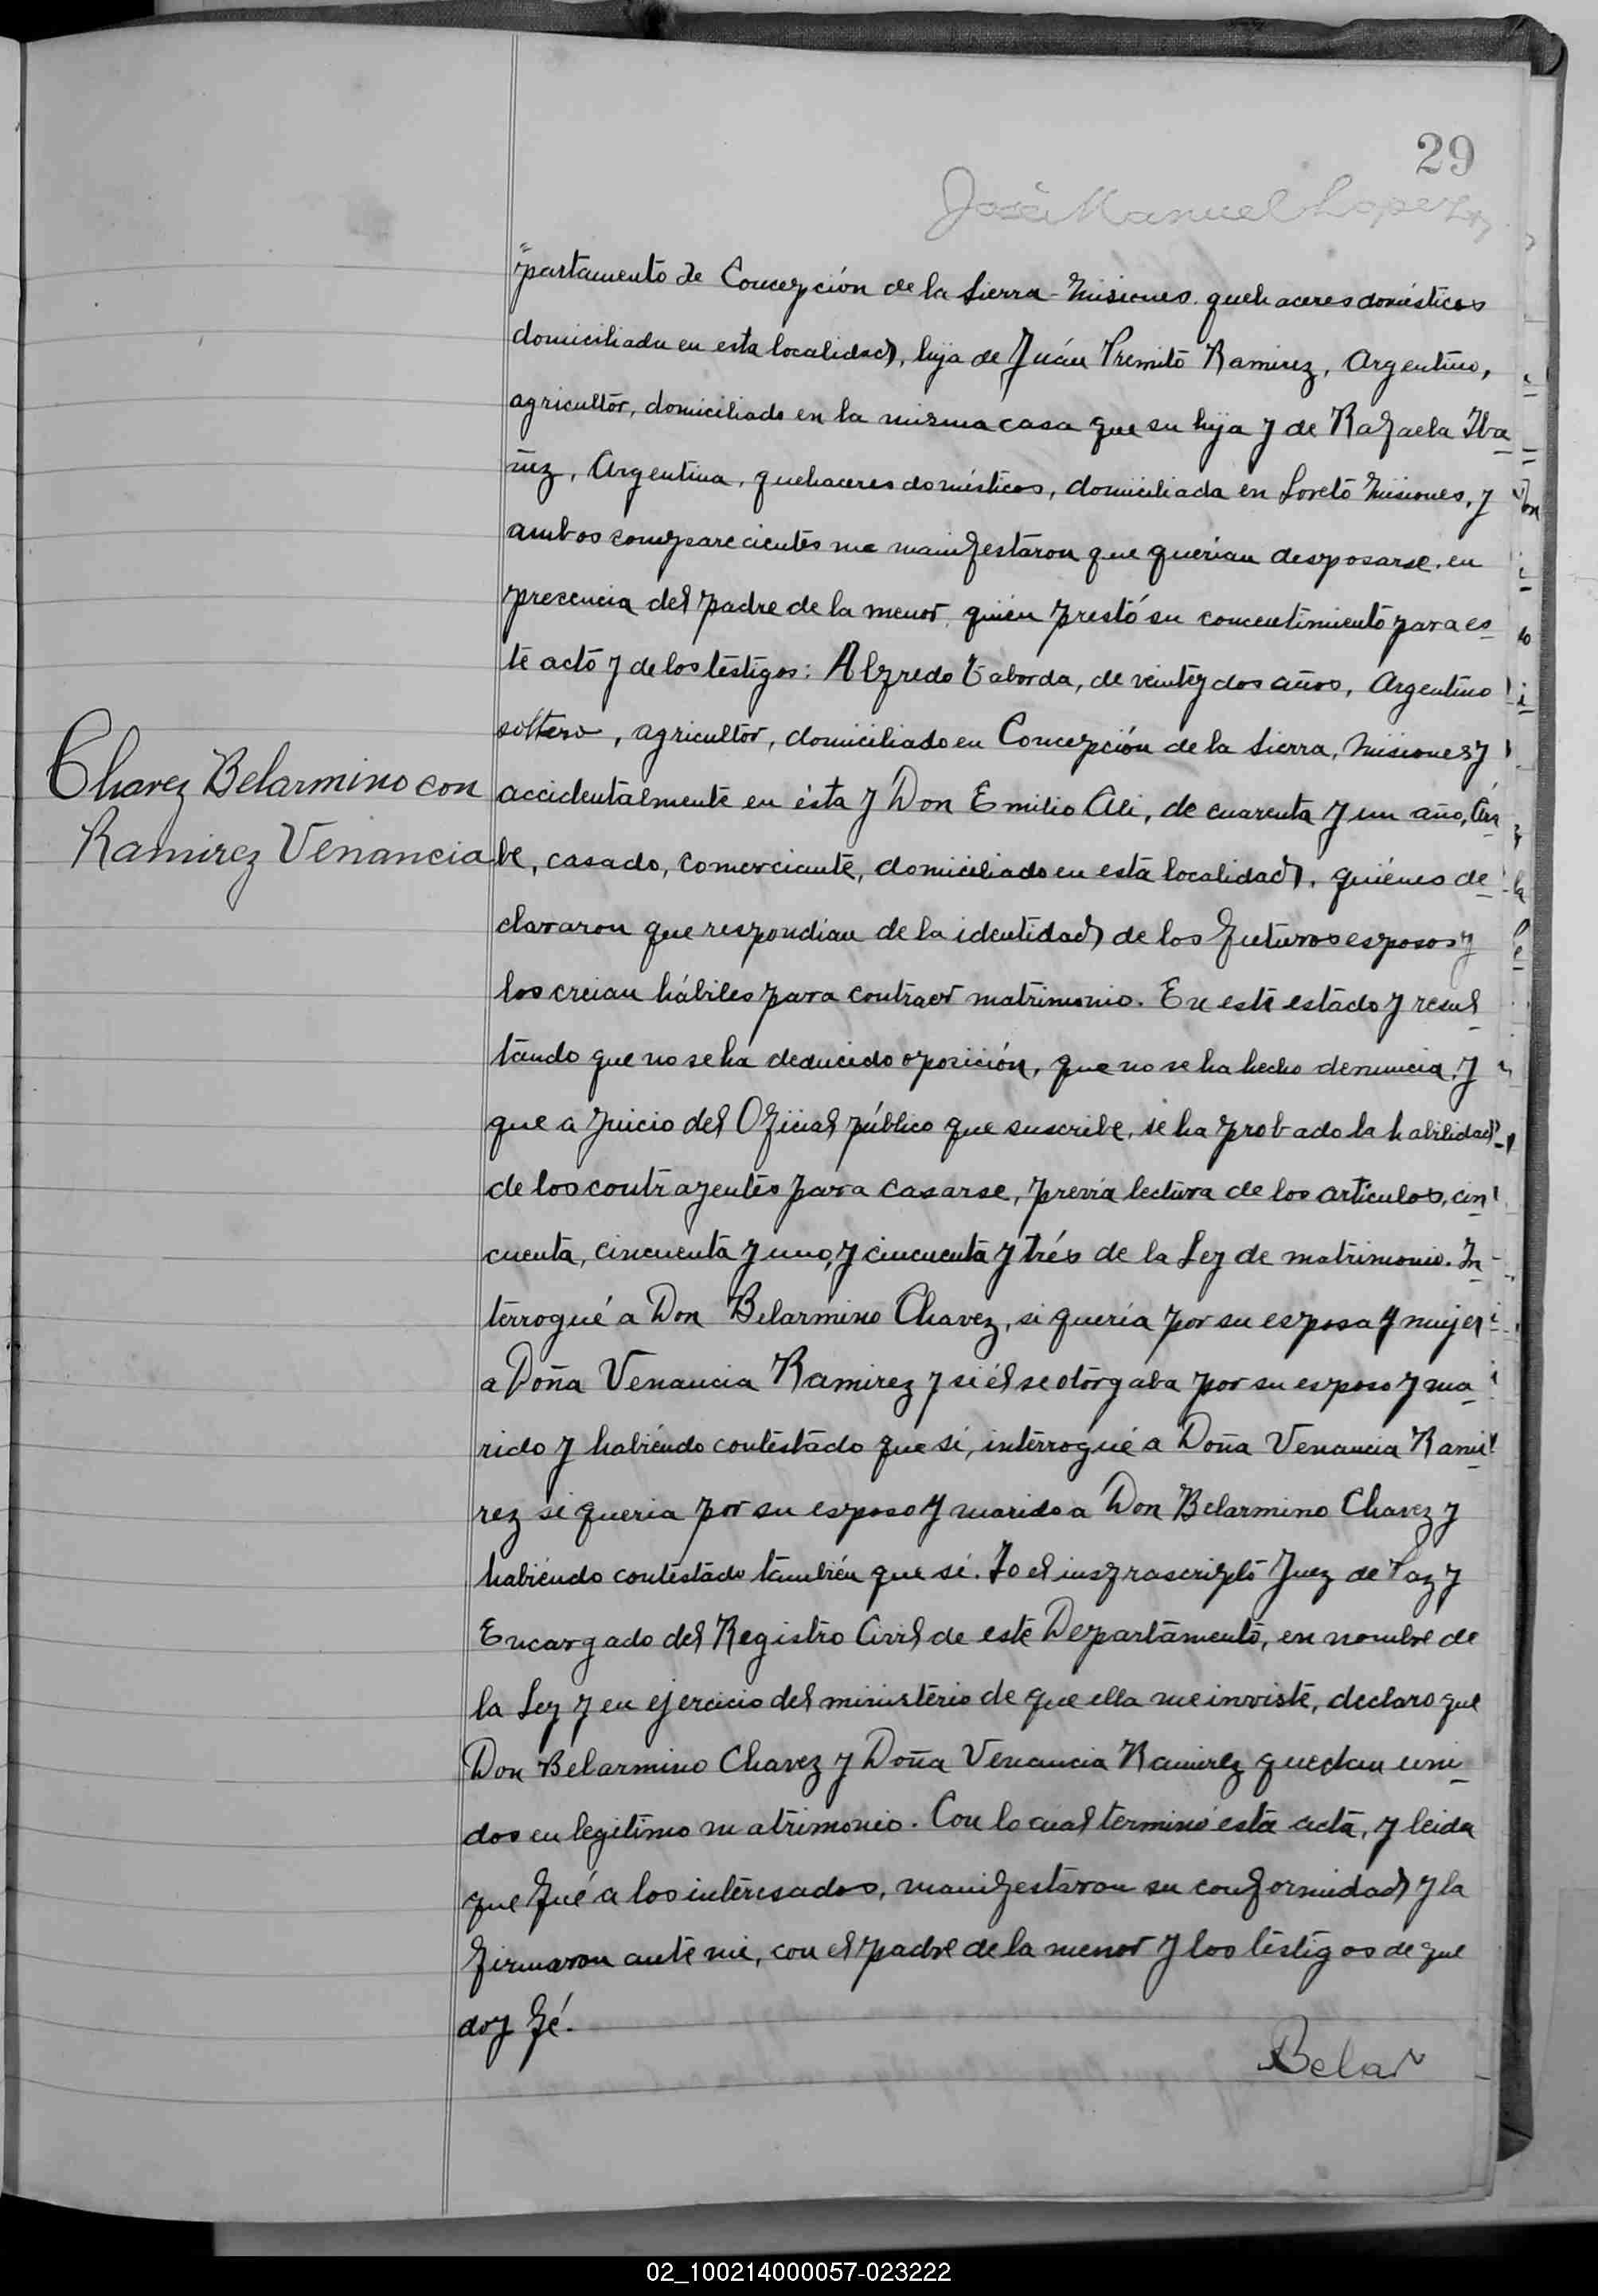 29
José Manuel Lopez
"partamento de Concepción de la Sierra-Misiones. quehaceres domésticos
domiciliada en esta localidad, hija de Juán Premito Ramirez, Argentino,
agricultor, domiciliado en la misma casa que su hija y de Rafaela Iba
ñez, Argentina, quehaceres domésticos, domiciliada en Loreto Misiones, y
ambos comparecientes me manifestaron que querian desposarse, en
precencia del padre de la menor, quién prestó su concentimiento para es
te acto y de los testigos: Alfredo Taborda, de veinte y dos años, Argentino
soltero, agricultor, domiciliado en Concepción de la Sierra, Misiones y
accidentalmente en ésta y Don Emilio Ali, de cuarenta y un año, Ára
Chavez Belarmino con
Ramirez Venancia
be, casado, comerciante, domiciliado en esta localidad, quiénes de
clararon que respondian de la identidad de los futuros esposos y
los creian hábiles para contraer matrimonio. En este estado y resul
tando que no se ha deducido oposición, que no se ha hecho denuncia, y
que a juicio del Oficial público que suscribe, se ha probado la habilidad
de los contrayentes para casarse, previa lectura de los articulos, cin
cuenta, cincuenta y uno, y cincuenta y trés de la Ley de matrimonio. In
terrogué a Don Belarmino Chavez, si quería por su esposa y mujer
a Doña Venancia Ramirez y si él se otorgaba por su esposo y ma
rido y habiéndo contestado que sí, interrogué a Doña Venancia Rami
rez si queria por su esposo y marido a Don Belarmino Chavez y
habiéndo contestado también que sí. Yo el insfrascripto Juez de Paz y
Encargado del Registro Civil de este Departamento, en nombre de
la Ley y en ejercicio del ministerio de que ella me inviste, declaro que
Don Belarmino Chavez y Doña Venancia Ramirez quedan uni
dos en legitimo matrimonio. Con lo cual terminó esta acta, y leida
que fué a los interesados, manifestaron su conformidad y la
firmaron ante mi, con el padre de la menor y los testigos de que
doy fé.
Belar
02_100214000057-023222